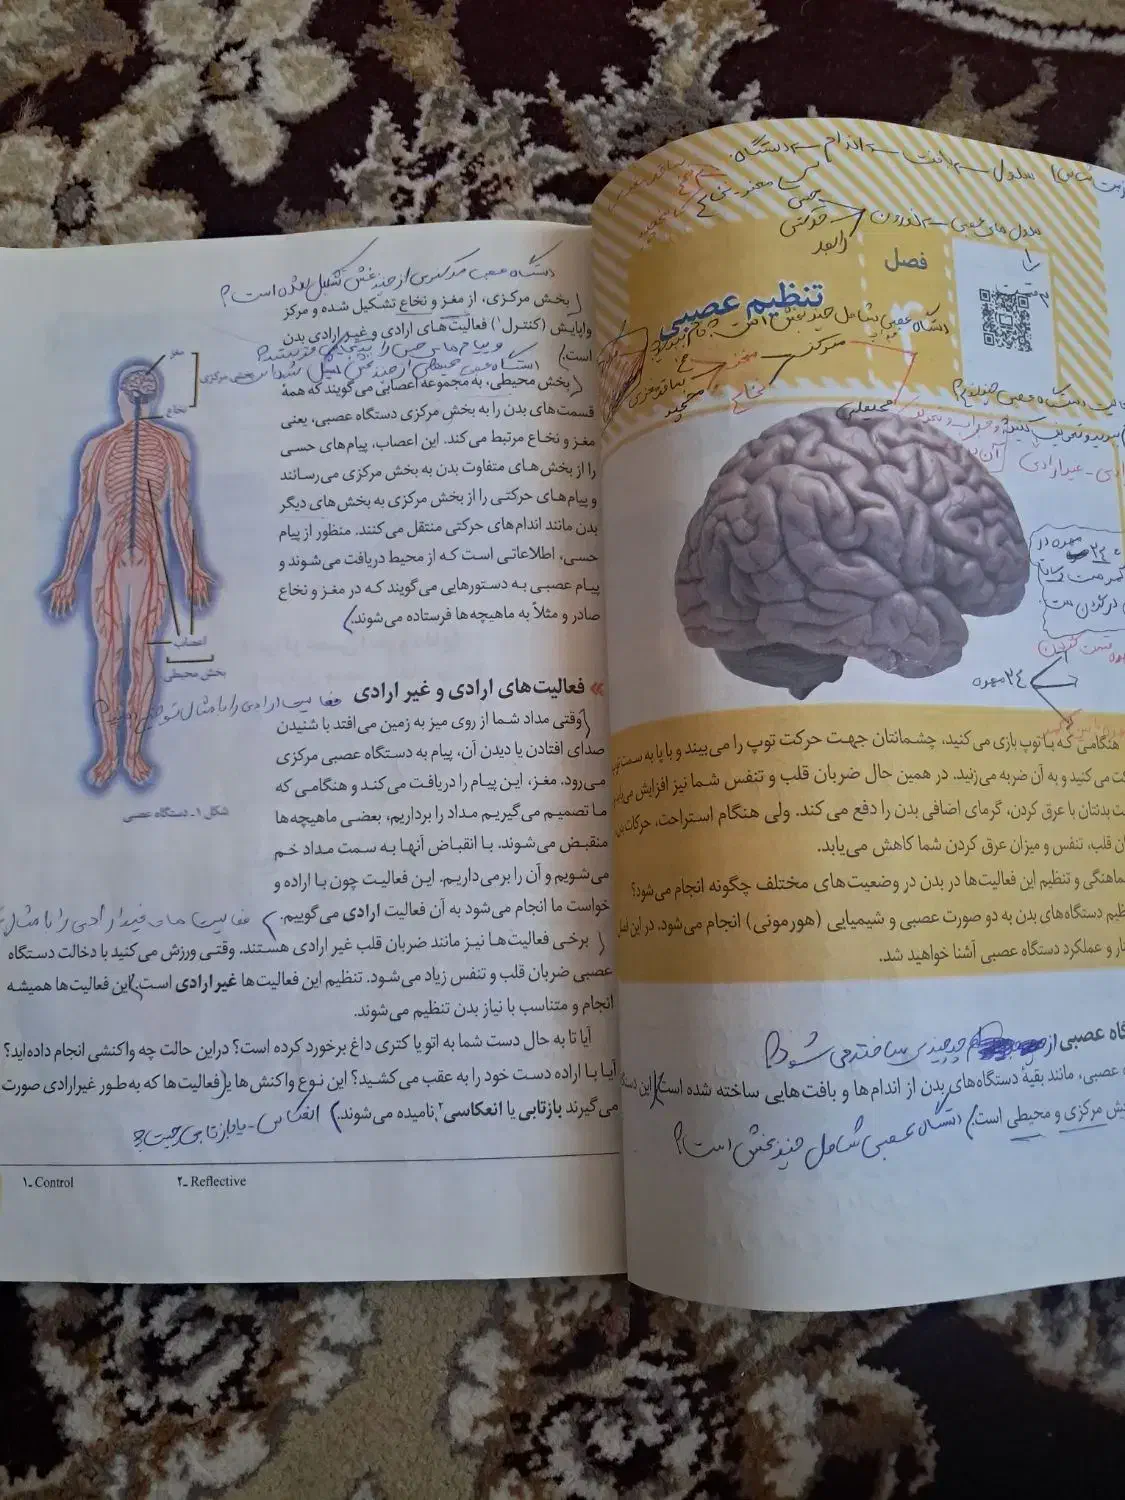 فصل
تنظیم عصبی
سلول ← بافت ← اندام ← دستگاه
سلول های عصبی ← نورون
حسی
حرکتی
رابط
مرکزی
محیطی
مخ
مخچه
نخاع
۲۴ مهره
هنگامی که با توپ بازی می‌کنید، چشمانتان جهت حرکت توپ را می‌بیند و با پا به سمت توپ
می‌کنید و به آن ضربه می‌زنید. در همین حال ضربان قلب و تنفس شما نیز افزایش می‌یابد
بدنتان با عرق کردن، گرمای اضافی بدن را دفع می‌کند. ولی هنگام استراحت، حرکات
قلب، تنفس و میزان عرق کردن شما کاهش می‌یابد.
هماهنگی و تنظیم این فعالیت‌ها در بدن در وضعیت‌های مختلف چگونه انجام می‌شود؟
تنظیم دستگاه‌های بدن به دو صورت عصبی و شیمیایی (هورمونی) انجام می‌شود. در این
و عملکرد دستگاه عصبی آشنا خواهید شد.
عصبی از چه چیزی ساخته می شود؟
عصبی، مانند بقیهٔ دستگاه‌های بدن از اندام‌ها و بافت‌هایی ساخته شده است. این
مرکزی و محیطی است. دستگاه عصبی شامل چند بخش است؟
دستگاه عصبی مرکزی از چند بخش تشکیل شده است؟
بخش مرکزی، از مغز و نخاع تشکیل شده و مرکز
واپایش (کنترل۱) فعالیت‌های ارادی و غیر ارادی بدن
است.
بخش محیطی، به مجموعه اعصابی می‌گویند که همهٔ
قسمت‌های بدن را به بخش مرکزی دستگاه عصبی، یعنی
مغز و نخاع مرتبط می‌کند. این اعصاب، پیام‌های حسی
را از بخش‌های متفاوت بدن به بخش مرکزی می‌رسانند
و پیام‌های حرکتی را از بخش مرکزی به بخش‌های دیگر
بدن مانند اندام‌های حرکتی منتقل می‌کنند. منظور از پیام
حسی، اطلاعاتی است که از محیط دریافت می‌شوند و
پیام عصبی به دستورهایی می‌گویند که در مغز و نخاع
صادر و مثلاً به ماهیچه‌ها فرستاده می‌شوند.
مغز
بخش مرکزی
نخاع
اعصاب
بخش محیطی
شکل ۱ـ دستگاه عصبی
» فعالیت‌های ارادی و غیر ارادی
فعالیت ارادی را با مثال توضیح دهید؟
وقتی مداد شما از روی میز به زمین می‌افتد با شنیدن
صدای افتادن یا دیدن آن، پیام به دستگاه عصبی مرکزی
می‌رود. مغز، این پیام را دریافت می‌کند و هنگامی که
ما تصمیم می‌گیریم مداد را برداریم، بعضی ماهیچه‌ها
منقبض می‌شوند. با انقباض آنها به سمت مداد خم
می‌شویم و آن را برمی‌داریم. این فعالیت چون با اراده و
خواست ما انجام می‌شود به آن فعالیت ارادی می‌گوییم.
فعالیت های غیر ارادی را با مثال
برخی فعالیت‌ها نیز مانند ضربان قلب غیر ارادی هستند. وقتی ورزش می‌کنید با دخالت دستگاه
عصبی ضربان قلب و تنفس زیاد می‌شود. تنظیم این فعالیت‌ها غیرارادی است. این فعالیت‌ها همیشه
انجام و متناسب با نیاز بدن تنظیم می‌شوند.
آیا تا به حال دست شما به اتو یا کتری داغ برخورد کرده است؟ دراین حالت چه واکنشی انجام داده‌اید؟
آیا با اراده دست خود را به عقب می‌کشید؟ این نوع واکنش‌ها یا فعالیت‌ها که به‌طور غیرارادی صورت
می‌گیرند بازتابی یا انعکاسی۲ نامیده می‌شوند.
انعکاس - یا بازتابی چیست؟
۱ـ Control
۲ـ Reflective